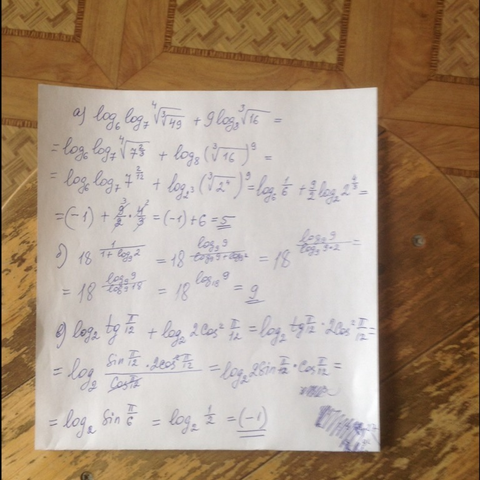 а) log₆ log₇ ⁴√∛49 + 9 log₈ ∛16 =
= log₆ log₇ ⁴√7^(2/3) + log₈ (∛16)⁹ =
= log₆ log₇ 7^(2/12) + log₂³ (∛2⁴)⁹ = log₆ 1/6 + 9/2 log₂ 2^(4/3) =
= (-1) + 9/2 · 4/3 = (-1) + 6 = 5
б) 18^(1/(1+log₉2)) = 18^(log₉9/(log₉9+log₉2)) = 18^(log₉9/log₉9·2) =
= 18^(log₉9/log₉18) = 18^(log₁₈9) = 9
в) log₂ tg π/12 + log₂ 2cos² π/12 = log₂ tg π/12 · 2cos² π/12 =
= log₂ (sin π/12 · 2cos² π/12)/(cos π/12) = log₂ 2sin π/12 · cos π/12 =
= log₂ sin π/6 = log₂ 1/2 = (-1)